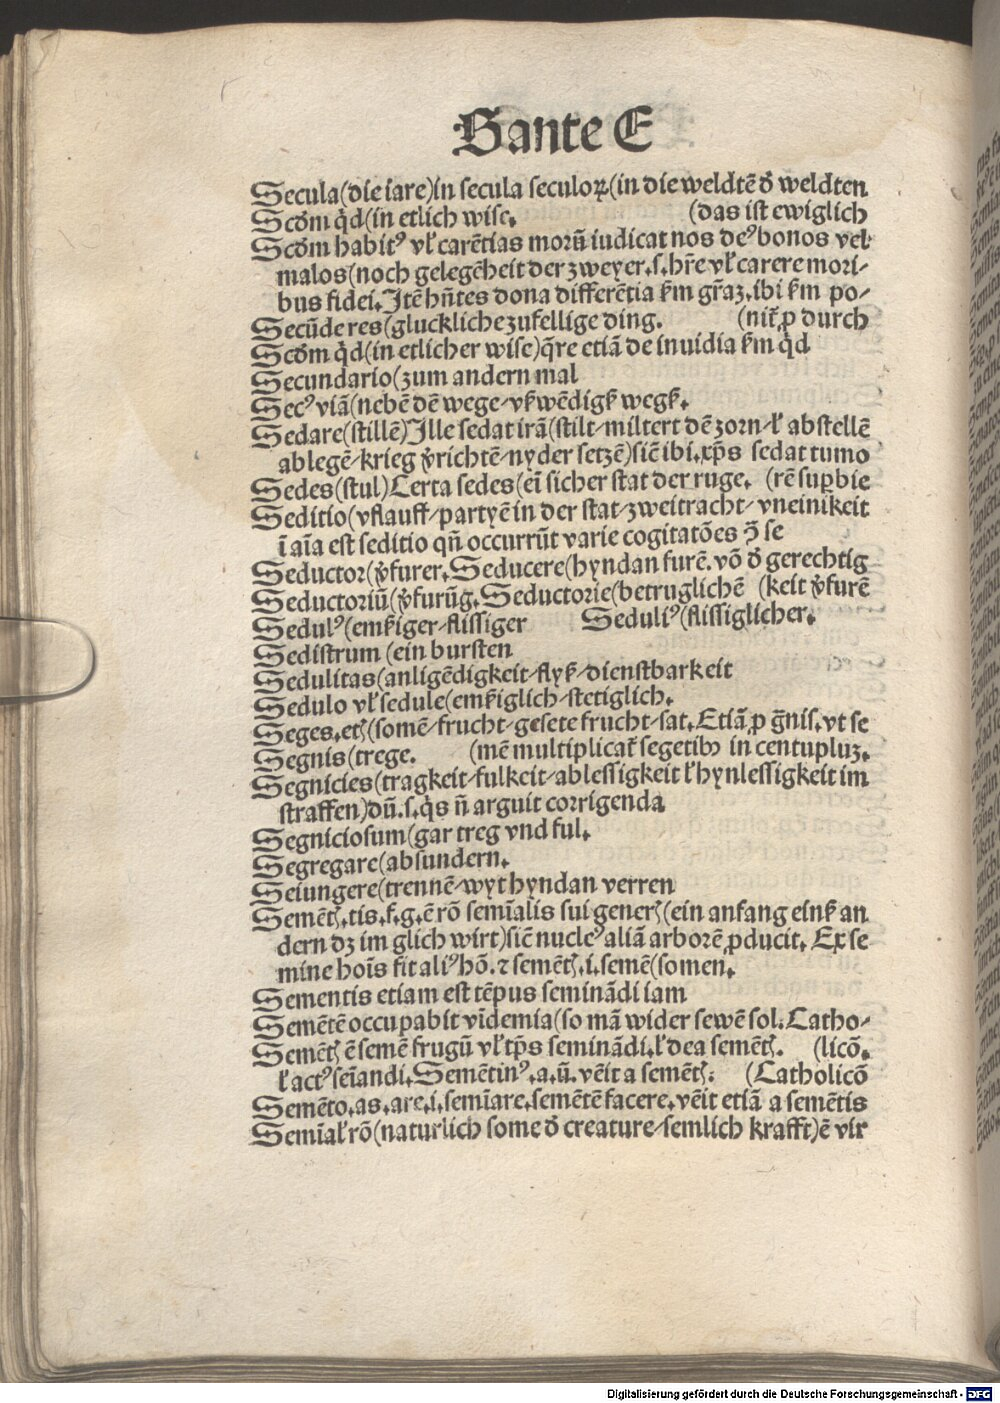 S ante E
Secula(die iare)in secula seculoꝝ(in die weldtē ď weldten
Scďm qď(in etlich wiſe. (das iſt ewiglich
Scďm habitꝰ vł carētias morū iudicat nos deꝰ bonos vel
malos(noch gelegēheit der zweyer.ſ.hr̄e vł carere mori⸗
bus fidei.Itē hn̄tes dona differētia ſm gr̄aʒ.ibi ſm po⸗
Secūde res(gluckliche zufellige ding. (nit̄.ꝓ durch
Scďm qď(in etlicher wiſe)q̄re etiā de inuidia ſm qď
Secundario(zum andern mal
Secꝰ viā(nebē dē wege⸗vſwēdigſ wegſ.
Sedare(ſtillē)Ille ſedat irā(ſtilt⸗miltert dē zorn⸗ł abſtellē
ablegē⸗krieg v̓richtē⸗nyder ſetzē)ſiē ibi.xp̄s ſedat tumo
Sedes(ſtul)Certa ſedes(eī ſicher ſtat der ruge. (rē ſuꝑbie
Seditio(vflauff⸗partyē in der ſtat⸗zweitracht⸗vneinikeit
ī aīa eſt ſeditio qn̄ occurrūt varie cogitatōes ꝯ̄ ſe
Seductor(v̓furer.Seducere(hyndan furē.vō ď gerechtig
Seductoriū(v̓furūg.Seductorie(betruglichē (keit v̓furē
Sedulꝰ(emſiger⸗fliſſiger Seduliꝰ(fliſſiglicher.
Sediſtrum(ein burſten
Sedulitas(anligēdigkeit⸗flyſ⸗dienſtbarkeit
Sedulo vł ſedule(emſiglich⸗ſtetiglich.
Seges.etꝭ(ſomē⸗frucht⸗geſete frucht⸗ſat.Etiā.ꝓ ḡnis.vt ſe
Segnis(trege. (mē multiplicat̄ ſegetibꝫ in centupluʒ.
Segnicies(tragkeit⸗fulkeit⸗ableſſigkeit ł hynleſſigkeit im
ſtraffen)dū.ſ.q̇s n̄ arguit corrigenda
Segnicioſum(gar treg vnd ful.
Segregare(abſundern.
Seiungere(trennē⸗wyt hyndan verren
Semētꝭ.tis.f.g.ē rō ſemīalis ſui generꝭ(ein anfang einſ an
dern dʒ im glich wirt)ſiē nucleꝰ aliā arborē ꝓducit. Ex ſe
mine hoīs fit aliꝰ hō.⁊ ſemētꝭ.i.ſemē(ſomen.
Sementis etiam eſt tēpus ſeminādi iam
Semētē occupabit vīdemia(ſo mā wider ſewē ſol.Catho⸗
Semētꝭ ē ſemē frugū vł tp̄s ſeminādi.ł dea ſemētꝭ. (licō.
ł actꝰ ſeīandi.Semētinꝰ.a.ū.vēit a ſemētꝭ: (Catholicō
Semēto.as.are.i.ſemīare.ſemētē facere.vēit etiā a ſemētis
Semīał rō(naturlich ſome ď creature⸗ſemlich krafft)ē vir
Digitalisierung gefördert durch die Deutsche Forschungsgemeinschaft - DFG